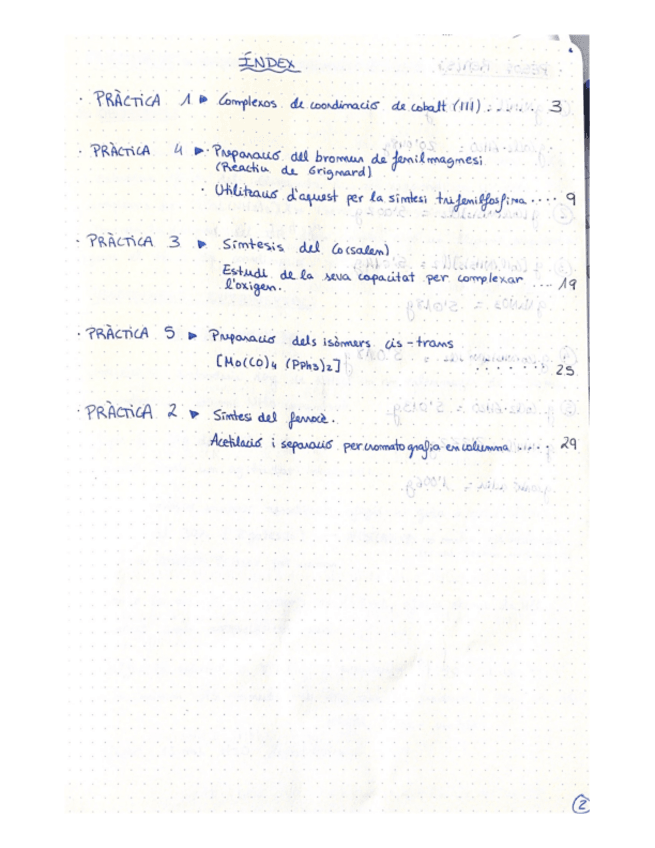 ÍNDEX
· PRÀCTICA 1 ▶ Complexos de coordinació de cobalt (III) ...... 3
· PRÀCTICA 4 ▶ · Preparació del bromur de fenilmagnesi
(Reactiu de Grignard)
· Utilització d'aquest per la síntesi trifenilfosfina .... 9
· PRÀCTICA 3 ▶ Símtesis del Co(salen)
Estudi de la seva capacitat per complexar
l'oxigen. ... 19
· PRÀCTICA 5 ▶ Preparació dels isòmers cis-trans
[Mo(CO)4 (PPh3)2] ....... 25
· PRÀCTICA 2 ▶ Síntesi del ferrocè.
Acetilació i separació per cromatografia en columna ..... 29
2